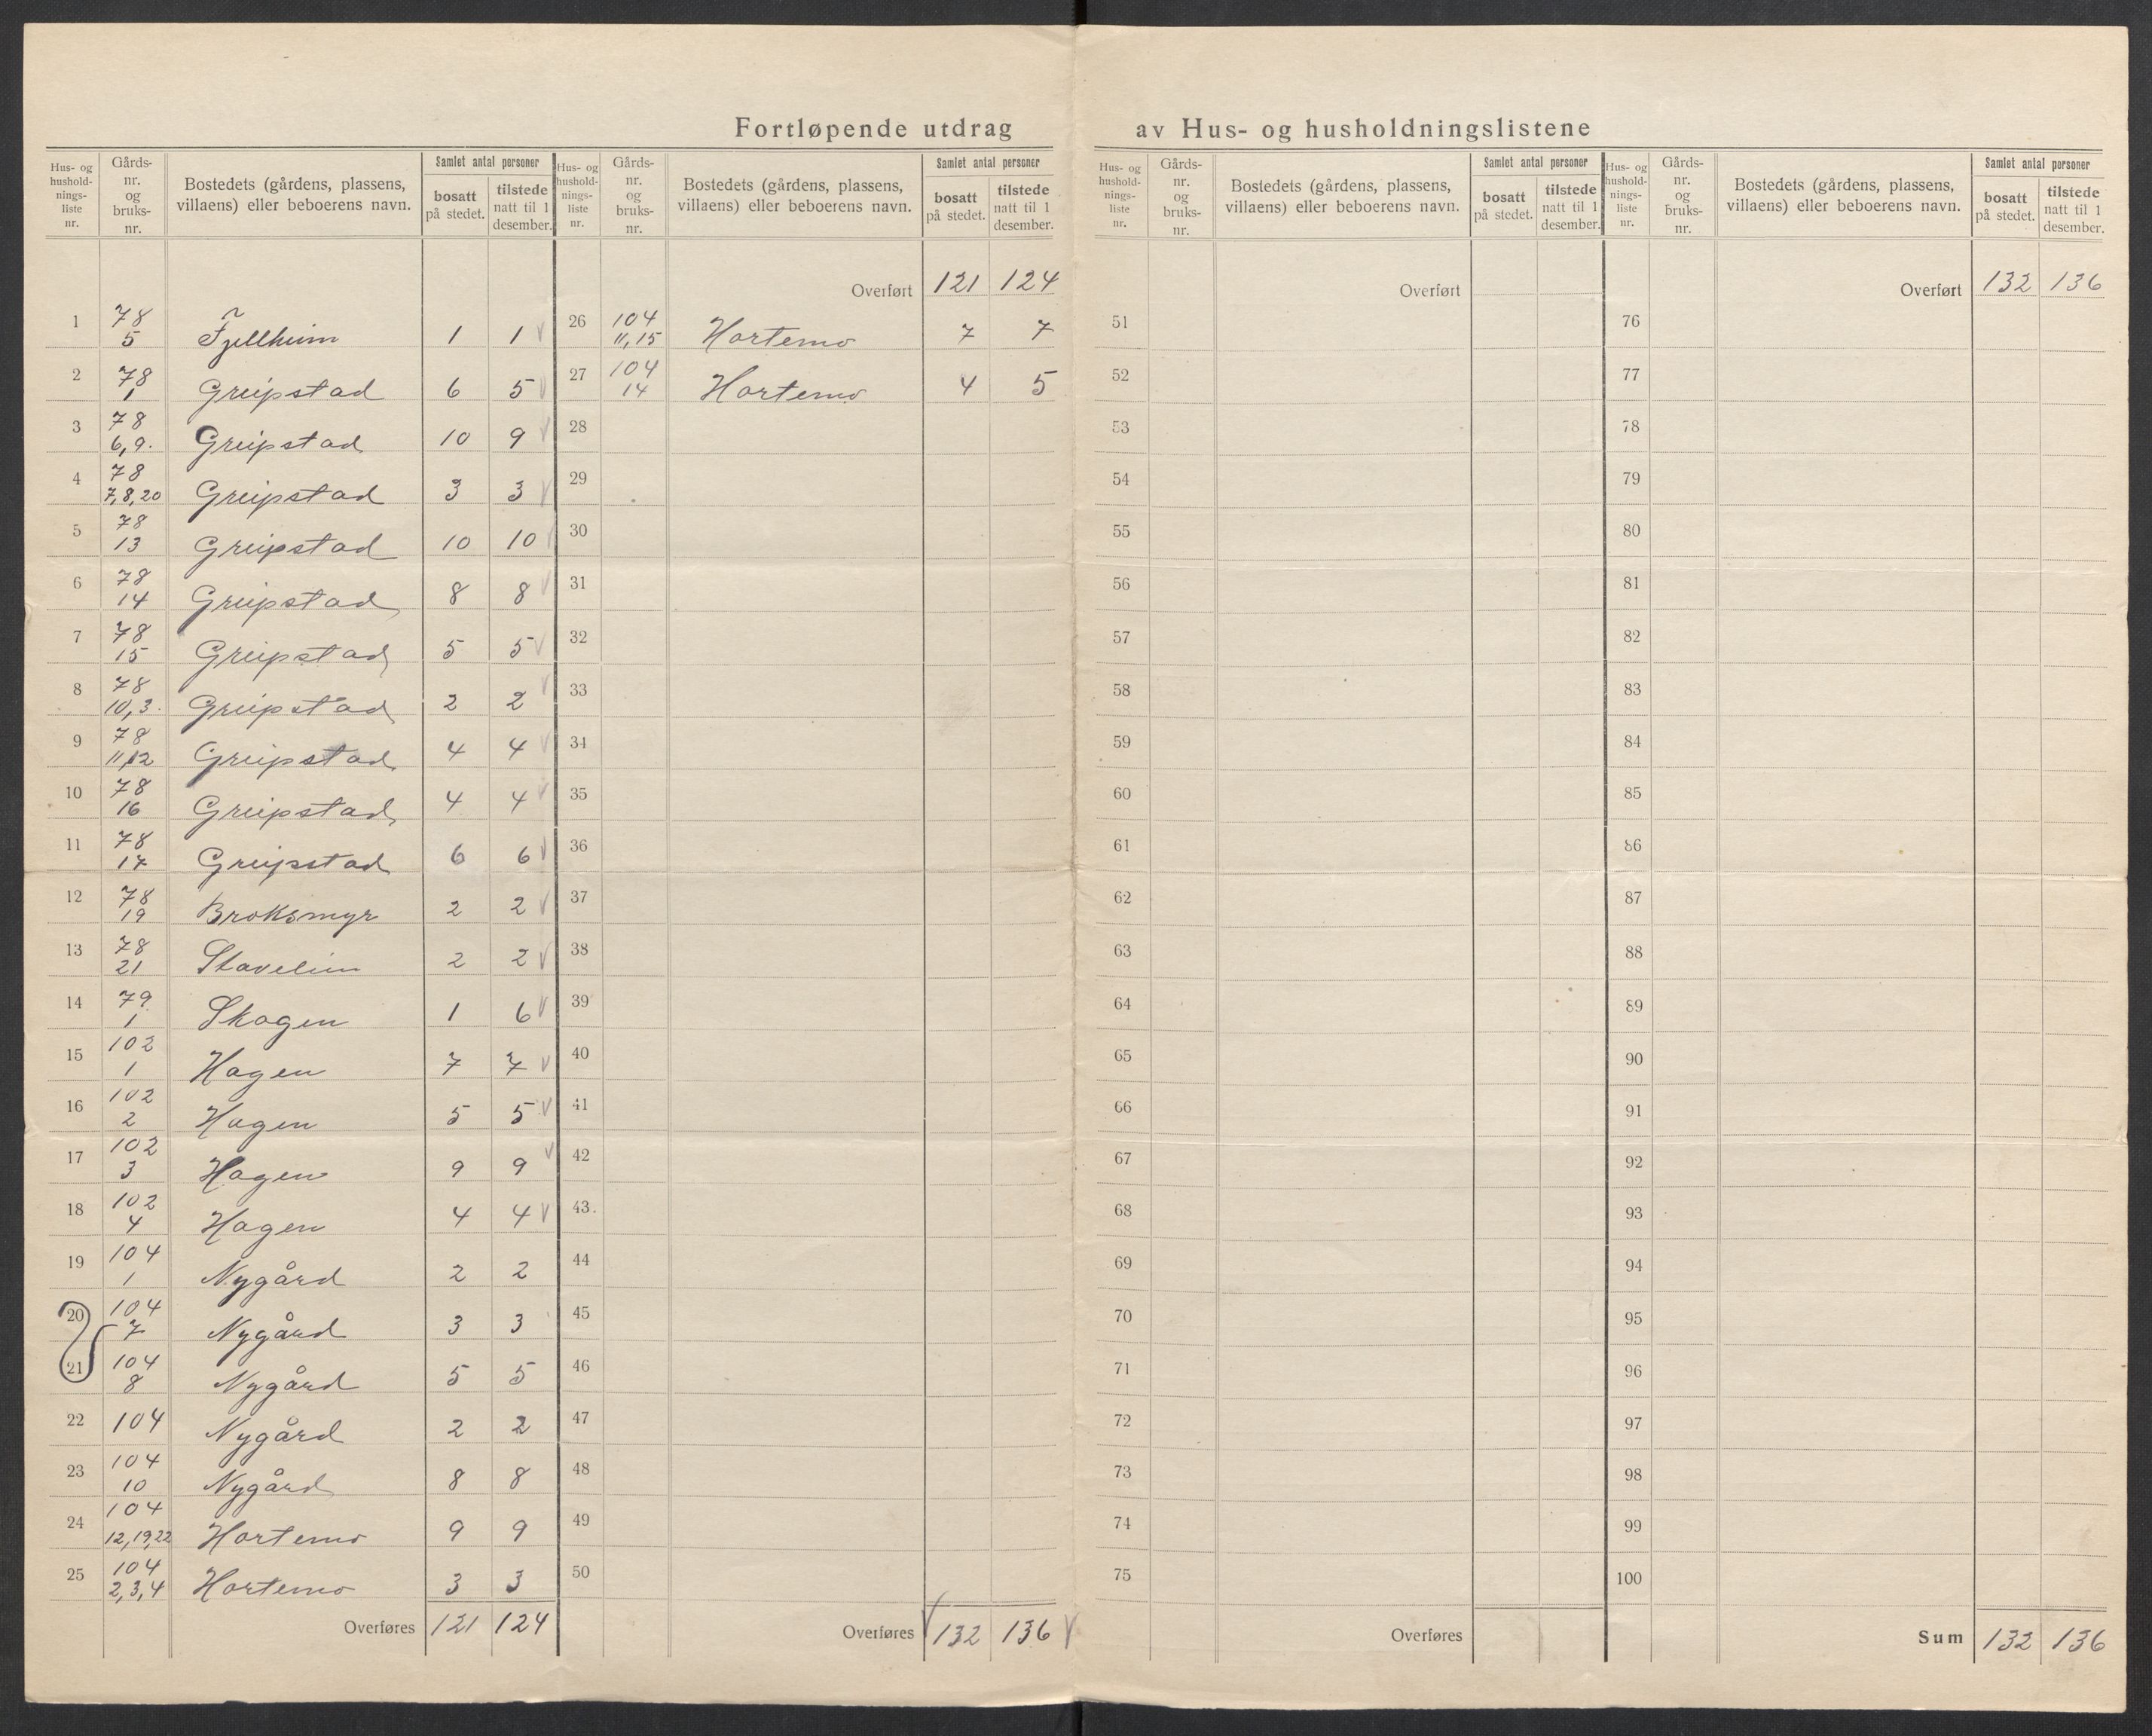 Fortløpende utdrag av Hus- og husholdningslistene
Hus- og husholdnings-liste nr. Gårds-nr. og bruks-nr. Bostedets (gårdens, plassens, villaens) eller beboerens navn. Samlet antal personer bosatt på stedet. tilstede natt til 1 desember.
Hus- og husholdnings-liste nr. Gårds-nr. og bruks-nr. Bostedets (gårdens, plassens, villaens) eller beboerens navn. Samlet antal personer bosatt på stedet. tilstede natt til 1 desember.
Hus- og husholdnings-liste nr. Gårds-nr. og bruks-nr. Bostedets (gårdens, plassens, villaens) eller beboerens navn. Samlet antal personer bosatt på stedet. tilstede natt til 1 desember.
Hus- og husholdnings-liste nr. Gårds-nr. og bruks-nr. Bostedets (gårdens, plassens, villaens) eller beboerens navn. Samlet antal personer bosatt på stedet. tilstede natt til 1 desember.
1 78 5 Fjellheim 1 1
2 78 1 Greipstad 6 5
3 78 6,9. Greipstad 10 9
4 78 7,8,20 Greipstad 3 3
5 78 13 Greipstad 10 10
6 78 14 Greipstad 8 8
7 78 15 Greipstad 5 5
8 78 10,3. Greipstad 2 2
9 78 11,12 Greipstad 4 4
10 78 16 Greipstad 4 4
11 78 17 Greipstad 6 6
12 78 19 Broksmyr 2 2
13 78 21 2 2
14 79 1 Skogen 1 6
15 102 1 Hagen 7 7
16 102 2 Hagen 5 5
17 102 3 Hagen 9 9
18 102 4 Hagen 4 4
19 104 1 Nygård 2 2
20 104 7 Nygård 3 3
21 104 8 Nygård 5 5
22 104 Nygård 2 2
23 104 10 Nygård 8 8
24 104 12,19,22 Hortemo 9 9
25 104 2,3,4 Hortemo 3 3
Overføres 121 124
Overført 121 124
26 104 11,15 Hortemo 7 7
27 104 14 Hortemo 4 5
28
29
30
31
32
33
34
35
36
37
38
39
40
41
42
43.
44
45
46
47
48
49
50
Overføres 132 136
Overført
51
52
53
54
55
56
57
58
59
60
61
62
63
64
65
66
67
68
69
70
71
72
73
74
75
Overføres
Overført 132 136
76
77
78
79
80
81
82
83
84
85
86
87
88
89
90
91
92
93
94
95
96
97
98
99
100
Sum 132 136